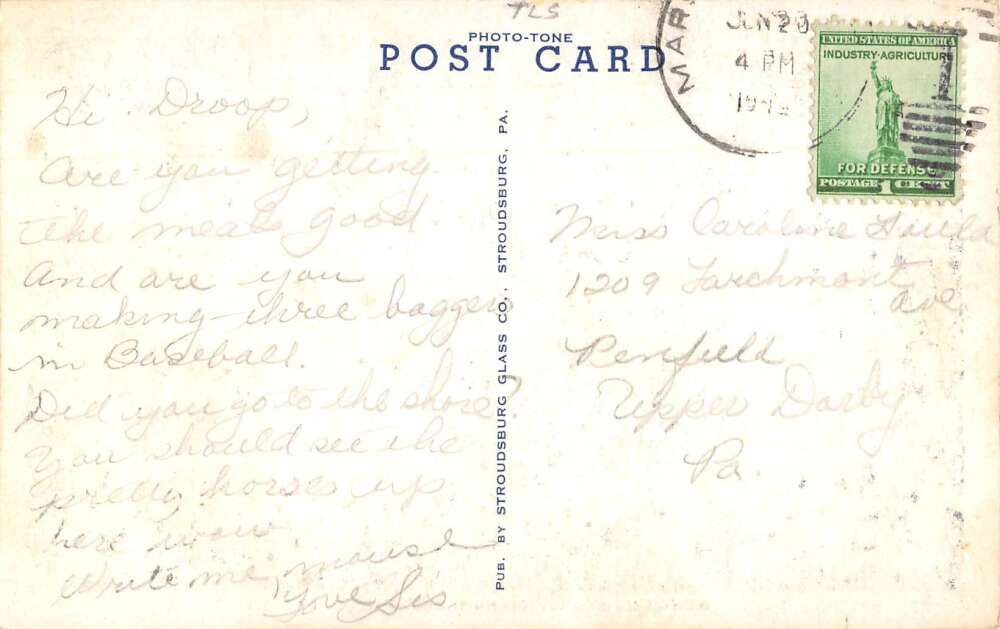 TLS
PHOTO-TONE
POST CARD
MAR
JUN 20
4 PM
194
UNITED STATES OF AMERICA
INDUSTRY·AGRICULTURE
FOR DEFENSE
POSTAGE 1 CENT
Hi Droop,
Are you getting
the meals good
And are you
making three baggers
in Baseball.
Did you go to the shore?
You should see the
pretty horses up
here wow
Write me, mouse
Love Sis
PUB. BY STROUDSBURG GLASS CO., STROUDSBURG, PA.
Miss Caroline
1209 Larchmont
Ave
Penfield
Upper Darby
Pa.